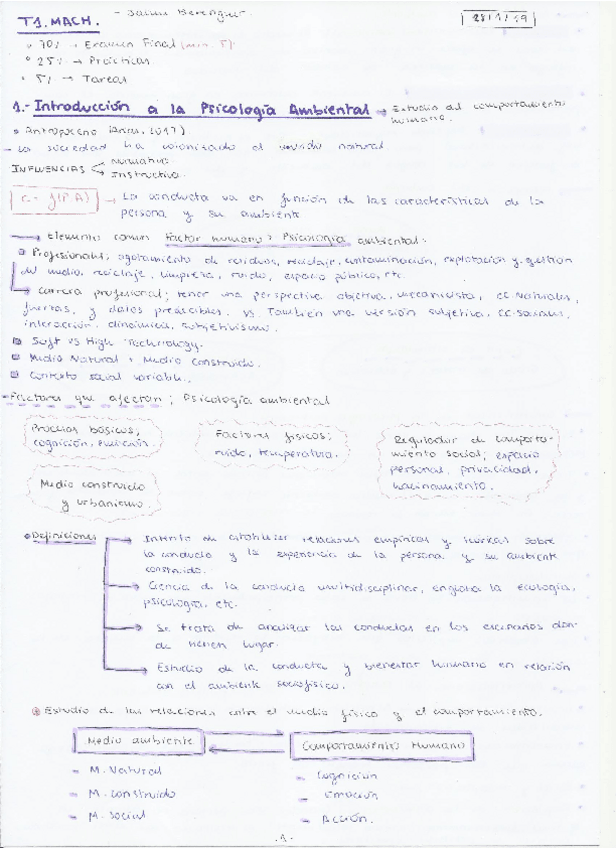 T1. MACH.
- Jaime Berenguer.
28/1/19
70% → Examen Final (min. 5).
25% → Prácticas
5% → Tareas
1.- Introducción a la Psicología Ambiental → Estudio del comportamiento
humano.
Antropoceno
- La sociedad ha colonizado el mundo natural
INFLUENCIAS Normativa.
Instructiva.
C = f(P.A) → La conducta va en función de las características de la
persona y su ambiente
Elemento común Factor humano: Psicología ambiental.
Profesionales; agotamiento de residuos, reciclaje, contaminación, explotación y gestión
del medio, reciclaje, limpieza, ruido, espacio público, etc.
Carrera profesional; tener una perspectiva objetiva, mecanicista, CC. Naturales,
fuertas, y datos predecibles. vs. También una versión subjetiva, CC. Sociales,
interacción, dinámica, subjetivismo.
Soft vs High Technology.
Medio Natural + Medio Construido.
Contexto social variable.
- Factores que afectan; Psicología ambiental
Procesos básicos;
cognición, emoción.
Factores físicos;
ruido, temperatura.
Regulador de comporta-
miento social; espacio
personal, privacidad,
hacinamiento.
Medio construido
y urbanismo.
Definiciones
Intento de establecer relaciones empíricas y teóricas sobre
la conducta y la experiencia de la persona y su ambiente
construido.
Ciencia de la conducta multidisciplinar, engloba la ecología,
psicología, etc.
Se trata de analizar las conductas en los escenarios don-
de tienen lugar.
Estudio de la conducta y bienestar humano en relación
con el ambiente sociofísico.
Estudio de las relaciones entre el medio físico y el comportamiento.
Medio ambiente
Comportamiento Humano
- M. Natural
- Cognición
- M. Construido
- Emoción
- M. Social
- Acción.
.1.